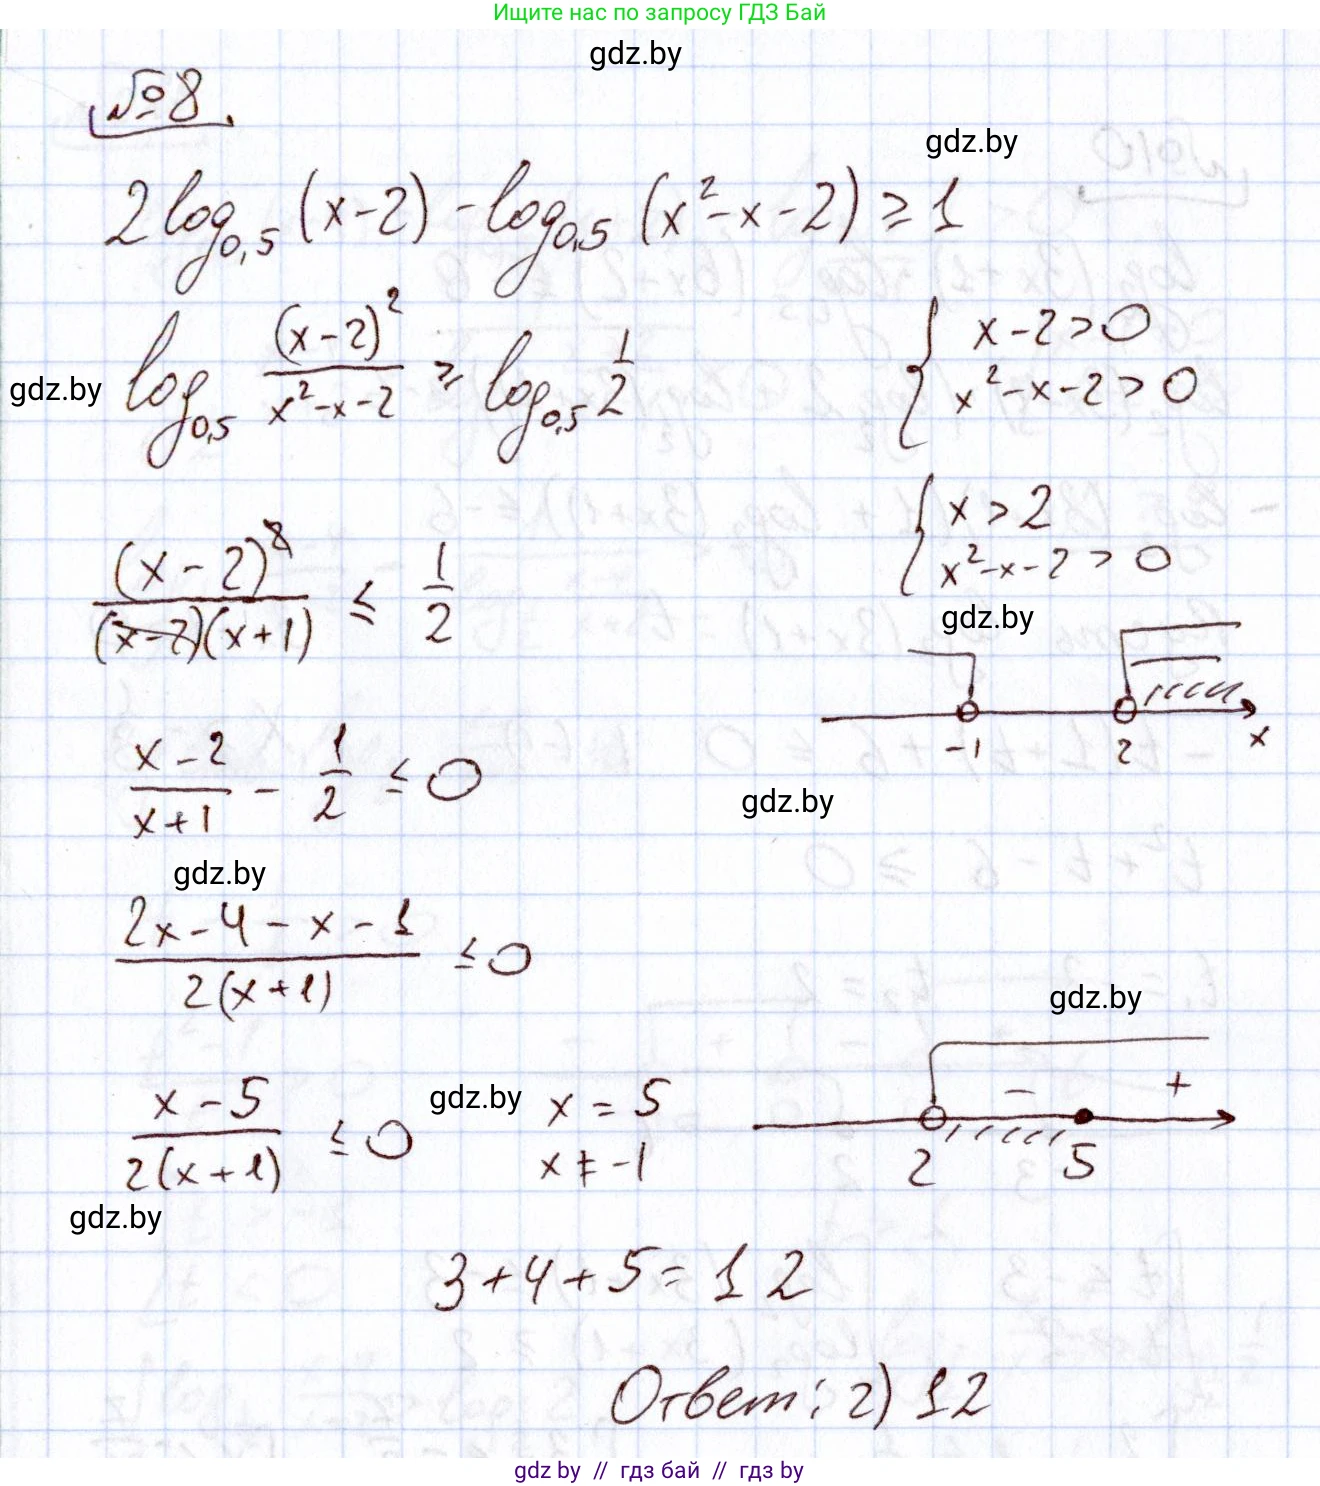 Ищите нас по запросу ГДЗ Бай
gdz.by
№8.
gdz.by
2log₀,₅(x-2) - log₀,₅(x²-x-2) ≥ 1
log₀,₅ (x-2)²/(x²-x-2) ≥ log₀,₅ 1/2
{ x-2>0
x²-x-2>0
gdz.by
{ x>2
x²-x-2>0
(x-2)²/((x-2)(x+1)) ≤ 1/2
gdz.by
-1 2 x
(x-2)/(x+1) - 1/2 ≤ 0
gdz.by
gdz.by
(2x-4-x-1)/(2(x+1)) ≤ 0
gdz.by
(x-5)/(2(x+1)) ≤ 0
gdz.by
x = 5
x ≠ -1
- +
2 5
gdz.by
3+4+5=12
Ответ: г) 12
gdz by // гдз бай // gdz by